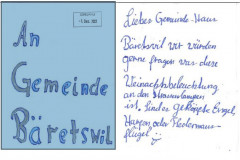 An
Gemeinde
Bäretswil
Liebes Gemeinde-Haus
Bäretswil wir würden
gerne fragen was diese
Weinachtsbeleuchtung
an den Strassenlampen
ist. Sind es geköpfte Engel,
Harfen oder Fledermaus-
flügel